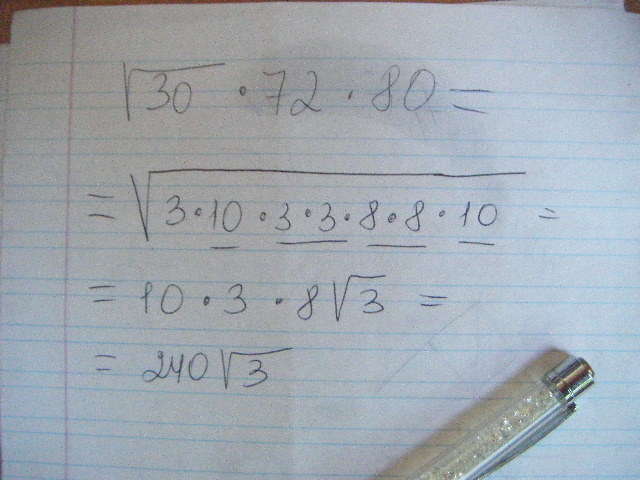 √30 · 72 · 80 =
= √3·10·3·3·8·8·10 =
= 10 · 3 · 8√3 =
= 240√3